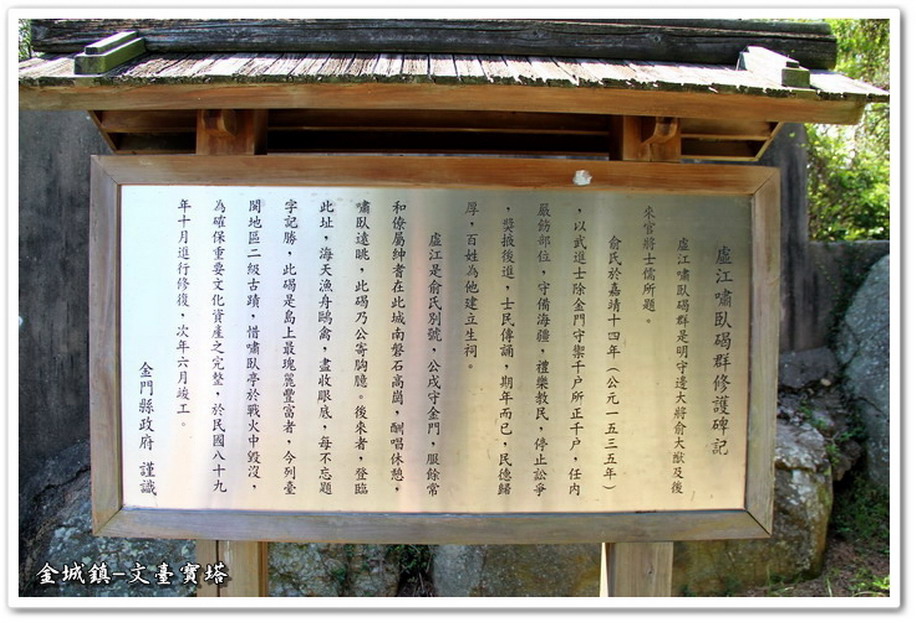 虛江嘯臥碣群修護碑記
虛江嘯臥碣群是明守邊大將俞大猷及後
來官將士儒所題。
俞氏於嘉靖十四年（公元一五三五年）
，以武進士除金門守禦千户所正千户，任內
嚴飭部位，守備海疆，禮樂教民，停止訟爭
，獎掖後進，士民傳誦，期年而已，民德歸
厚，百姓為他建立生祠。
虛江是俞氏別號，公戌守金門，服餘常
和僚屬紳耆在此城南磐石高崗，酬唱休憩，
嘯臥遠眺，此碣乃公寄胸臆。後來者，登臨
此址，海天漁舟鷗禽，盡收眼底，每不忘題
字記勝，此碣是島上最瑰麗豐富者，今列臺
閩地區二級古蹟，惜嘯臥亭於戰火中毀沒，
為確保重要文化資產之完整，於民國八十九
年十月進行修復，次年六月竣工。
金門縣政府 謹識
金城鎮-文臺寶塔